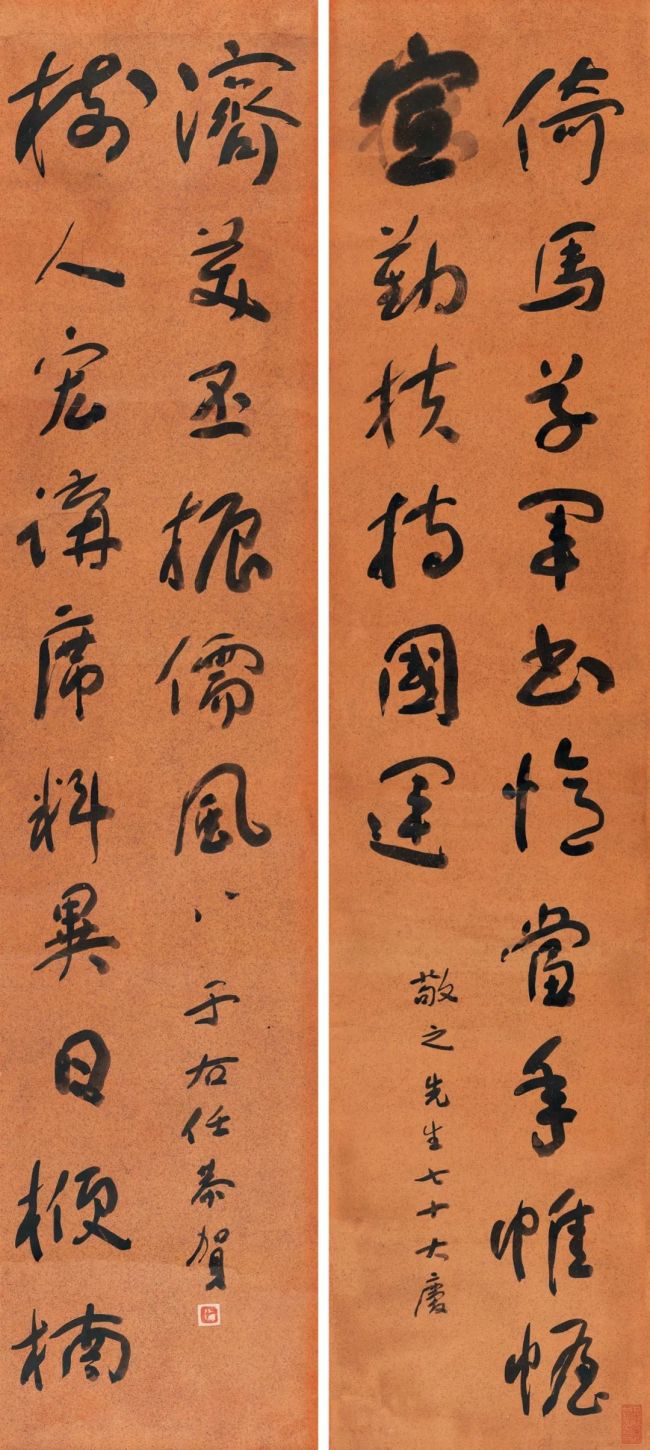 倚馬草軍書憶當年帷幄
宣勤扶持國運
敬之先生七十大慶
樹人宏講席料異日楩楠
濟美丕振儒風
于右任恭賀